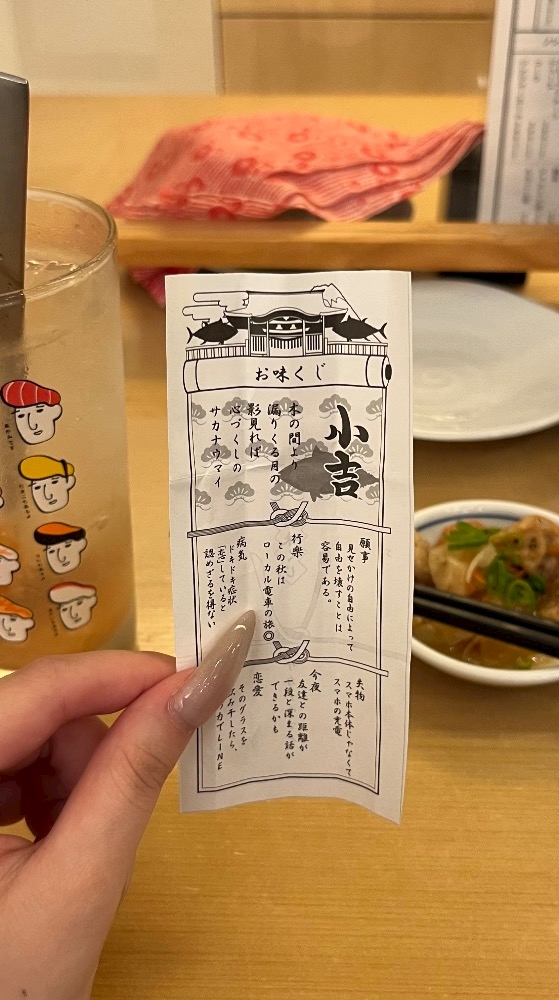 お味くじ
小吉
木の間より
漏りくる月の
影見れば
心づくしの
サカナウマイ
願事
見せかけの自由によって
自由を壊すことは
容易である。
行楽
この秋は
ローカル電車の旅◎
病気
ドキドキ症状
「恋」していると
認めざるを得ない
失物
スマホ本体じゃなくて
スマホの充電
今夜
友達との距離が
一段と深まる話が
できるかも
恋愛
そのグラスを
飲み干したら、
力でLINE